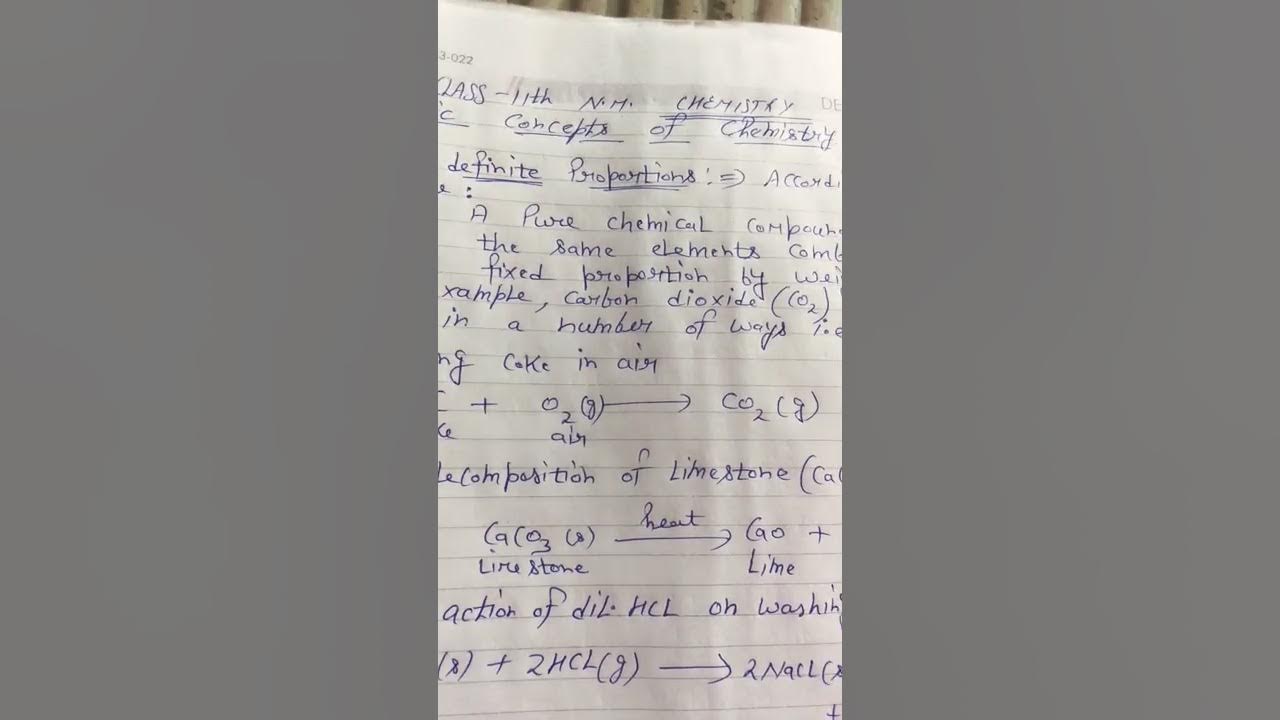 3-022
CLASS-11th N.M. CHEMISTRY DE
c Concepts of Chemistry
definite Proportions :⇒ Accordi
e :
A Pure chemical compoun
the same elements comb
fixed proportion by wei
xample, carbon dioxide (CO₂)
in a number of ways i.e
ng coke in air
C + O₂(g) ⟶ CO₂(g)
ke air
decomposition of Limestone (Ca
CaCO₃ (s) heat ⟶ CaO +
Limestone Lime
action of dil. HCL on washin
(s) + 2HCL(g) ⟶ 2NaCL(s
+